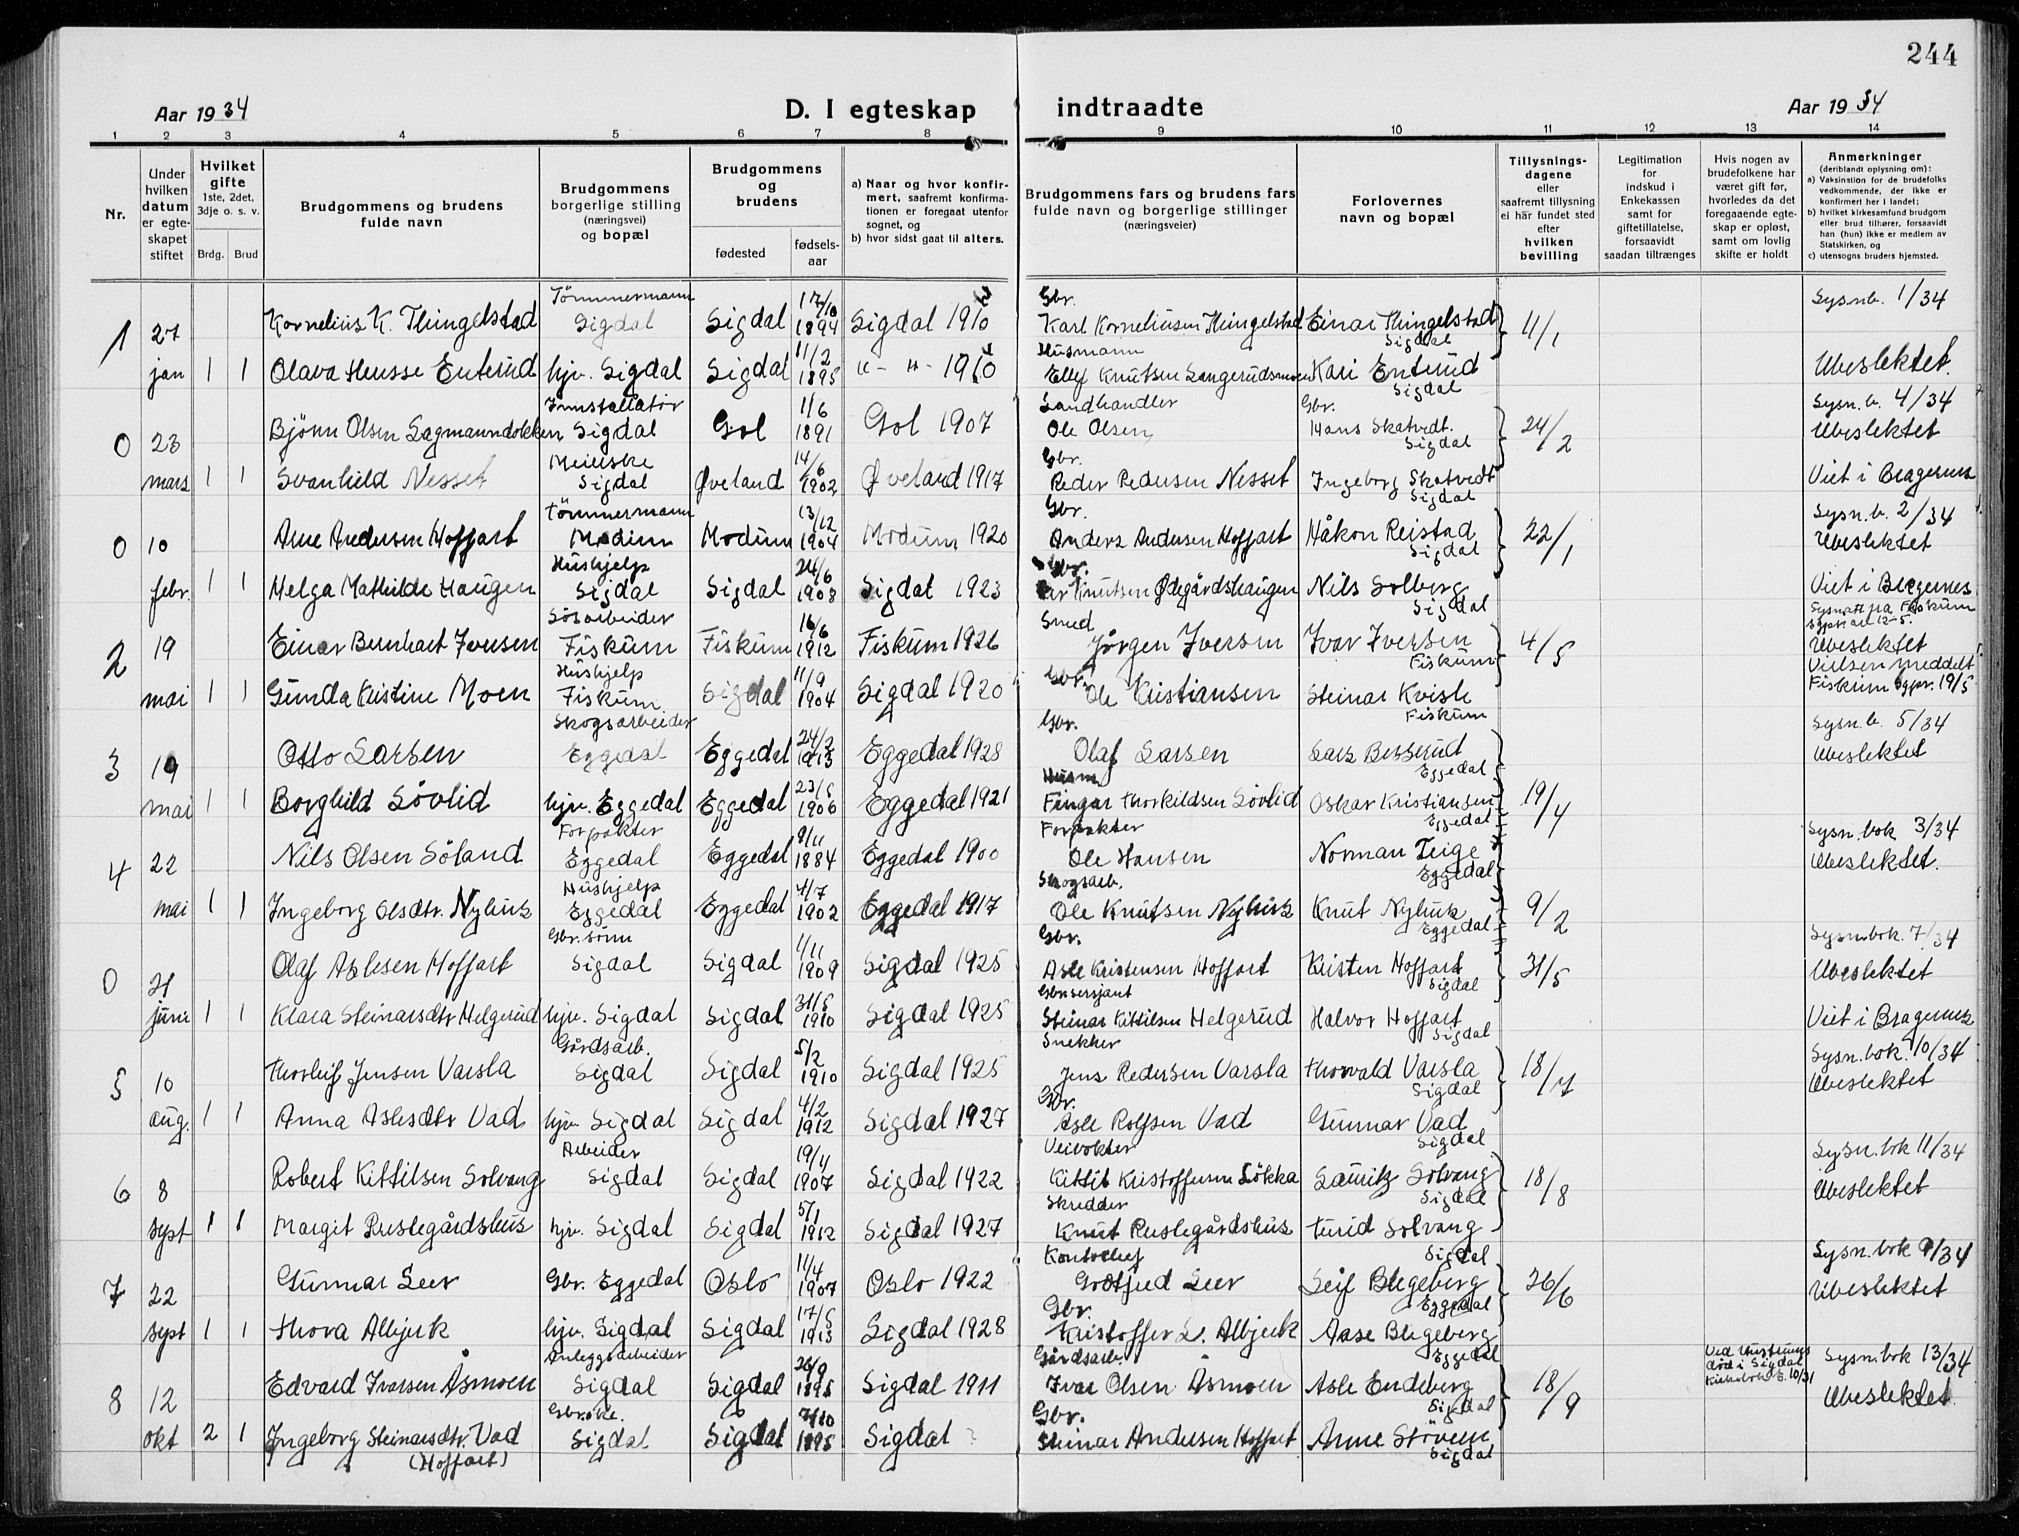 244
Aar 1934 D. I egteskap indtraadte Aar 1934
1 2 3 4 5 6 7 8 9 10 11 12 13 14
Nr.
Under hvilken datum er egteskapet stiftet
Hvilket gifte 1ste, 2det, 3dje o. s. v.
Brdg. Brud
Brudgommens og brudens fulde navn
Brudgommens borgerlige stilling (næringsvei) og bopæl
Brudgommens og brudens
fødested fødselsaar
a) Naar og hvor konfirmert, saafremt konfirmationen er foregaat utenfor sognet, og
b) hvor sidst gaat til alters.
Brudgommens fars og brudens fars fulde navn og borgerlige stillinger (næringsveier)
Forlovernes navn og bopæl
Tillysningsdagene eller saafremt tillysning ei har fundet sted efter hvilken bevilling
Legitimation for indskud i Enkekassen samt for giftetillatelse, forsaavidt saadan tiltrænges
Hvis nogen av brudefolkene har været gift før, hvorledes da det foregaaende egteskap er opløst, samt om lovlig skifte er holdt
Anmerkninger (deriblandt oplysning om):
a) Vaksination for de brudefolks vedkommende, der ikke er konfirmert her i landet;
b) hvilket kirkesamfund brudgom eller brud tilhører, forsaavidt han (hun) ikke er medlem av Statskirken, og
c) utensogns bruders hjemsted.
Tømmermann 17/10 Gbr. Sysnb. 1/34
1 27 Kornelius K. Thingelstad Sigdal Sigdal 1894 Sigdal 1910 Karl Korneliusen Thingelstad Einar Thingelstad Sigdal 11/1
11/2 Husmann
jan 1 1 Olava Hensse Enterud hjv. Sigdal Sigdal 1895 " - " - 1910 Ellef Knutsen Langerudsmoen Kari Enterud Sigdal Ubeslektet.
Innstallatør 1/6 Landhandler Gbr. Sysn.b. 4/34
0 23 Bjørn Olsen Lagmanndokken Sigdal Gol 1891 Gol 1907 Ole Olsen Hans Skatvedt. Sigdal 24/2 Ubeslektet
Meierske 14/6 Gbr.
mars 1 1 Svanhild Nesset Sigdal Øveland 1902 Øveland 1917 Peder Pedersen Nesset Ingeborg Skatvedt Sigdal Viet i Bragernes
Tømmermann 13/12 Gbr. Sysn.b. 2/34
0 10 Arne Andersen Hoffart Modum Modum 1904 Modum 1920 Anders Andersen Hoffart Håkon Reistad Sigdal 22/1 Ubeslektet
Hushjelp 24/6 Gbr.
febr. 1 1 Helga Mathilde Haugen Sigdal Sigdal 1908 Sigdal 1923 Knutsen Ødegårdshaugen Nils Solberg Sigdal Viet i Bragernes
16/6 Smed Sysnatt fra Fiskum
2 19 Einar Bernhart Iversen Fiskum Fiskum 1912 Fiskum 1926 Jørgen Iversen Ivar Iversen Fiskum 4/5 Ubeslektet
Hushjelp 11/9 Gbr. Vielsen meddelt
mai 1 1 Gunda Kristine Moen Fiskum Sigdal 1904 Sigdal 1920 Ole Kristiansen Steinar Kvisle Fiskum Fiskum sgpr. 19/5
Skogsarbeider 24/2 Gbr. Sysn.b. 5/34
3 19 Otto Larsen Eggedal Eggedal 1913 Eggedal 1928 Olaf Larsen Lars Besserud Eggedal Ubeslektet
23/5 Husm
mai 1 1 Borghild Søvlid hjv. Eggedal Eggedal 1906 Eggedal 1921 Fingar Thorkildsen Søvlid Oskar Kristiansen Eggedal 19/4
Forpakter 9/11 Forpakter Sysn.bok 3/34
4 22 Nils Olsen Søland Eggedal Eggedal 1884 Eggedal 1900 Ole Hansen Norman Teige Eggedal Ubeslektet.
Hushjelp 4/7 Skogsarb.
mai 1 1 Ingeborg Olsdtr. Nyhus Eggedal Eggedal 1902 Eggedal 1917 Ole Knutsen Nyhus Knut Nyhus Eggedal 9/2
Gbr. sønn 1/11 Gbr. Sysnbok. 7/34
0 21 Olaf Aslesen Hoffart Sigdal Sigdal 1909 Sigdal 1925 Asle Kristensen Hoffart Kristen Hoffart Sigdal 31/5 Ubeslektet
31/5
juni 1 1 Klara Steinarsdtr Helgerud hjv. Sigdal Sigdal 1910 Sigdal 1925 Steinar Kittilsen Helgerud Halvor Hoffart Sigdal Viet i Bragernes
Gårdsarb. 5/2 Snekker Sysn.bok. 10/34
5 10 Thorleif Jensen Varsla Sigdal Sigdal 1910 Sigdal 1925 Jens Pedersen Varsla Thorvald Varsla Sigdal 18/7 Ubeslektet
4/2 Gbr.
aug. 1 1 Anna Aslesdtr Vad hjv. Sigdal Sigdal 1912 Sigdal 1927 Asle Rolfsen Vad Gunnar Vad Sigdal
Arbeider 19/4 Veivokter Sysn.bok 11/34
6 8 Robert Kittilsen Solvang Sigdal Sigdal 1907 Sigdal 1922 Kittil Kristoffersen Løkka Lauritz Solvang Sigdal 18/8 Ubeslektet
5/1 Skredder
sept 1 1 Margit Ruslegårdshus hjv. Sigdal Sigdal 1912 Sigdal 1927 Knut Ruslegårdshus Turid Solvang Sigdal
11/4 Kontorchef Sysn.bok 9/34
7 22 Gunnar Seer Gbr. Eggedal Oslo 1907 Oslo 1922 Gotfred Seer Leif Blegeberg Eggedal 26/6 Ubeslektet
17/5 Gbr.
sept 1 1 Thora Albjerk hjv. Sigdal Sigdal 1913 Sigdal 1928 Kristoffer L. Albjerk Aase Blegeberg Eggedal
Anleggsarbeider 26/9 Gårdsarb. Ved hustruens død i Sigdal Kirkebok s. 10/31 Sysn.bok 13/34
8 12 Edvard Ivarsen Åsmoen Sigdal Sigdal 1895 Sigdal 1911 Ivar Olsen Åsmoen Asle Endeberg Sigdal 18/9 Ubeslektet
Gbrske. 7/10 Gbr.
okt 2 1 Ingeborg Steinarsdtr. Vad (Hoffart) Sigdal Sigdal 1895 Sigdal ? Steinar Andersen Hoffart Anne Støvern Sigdal